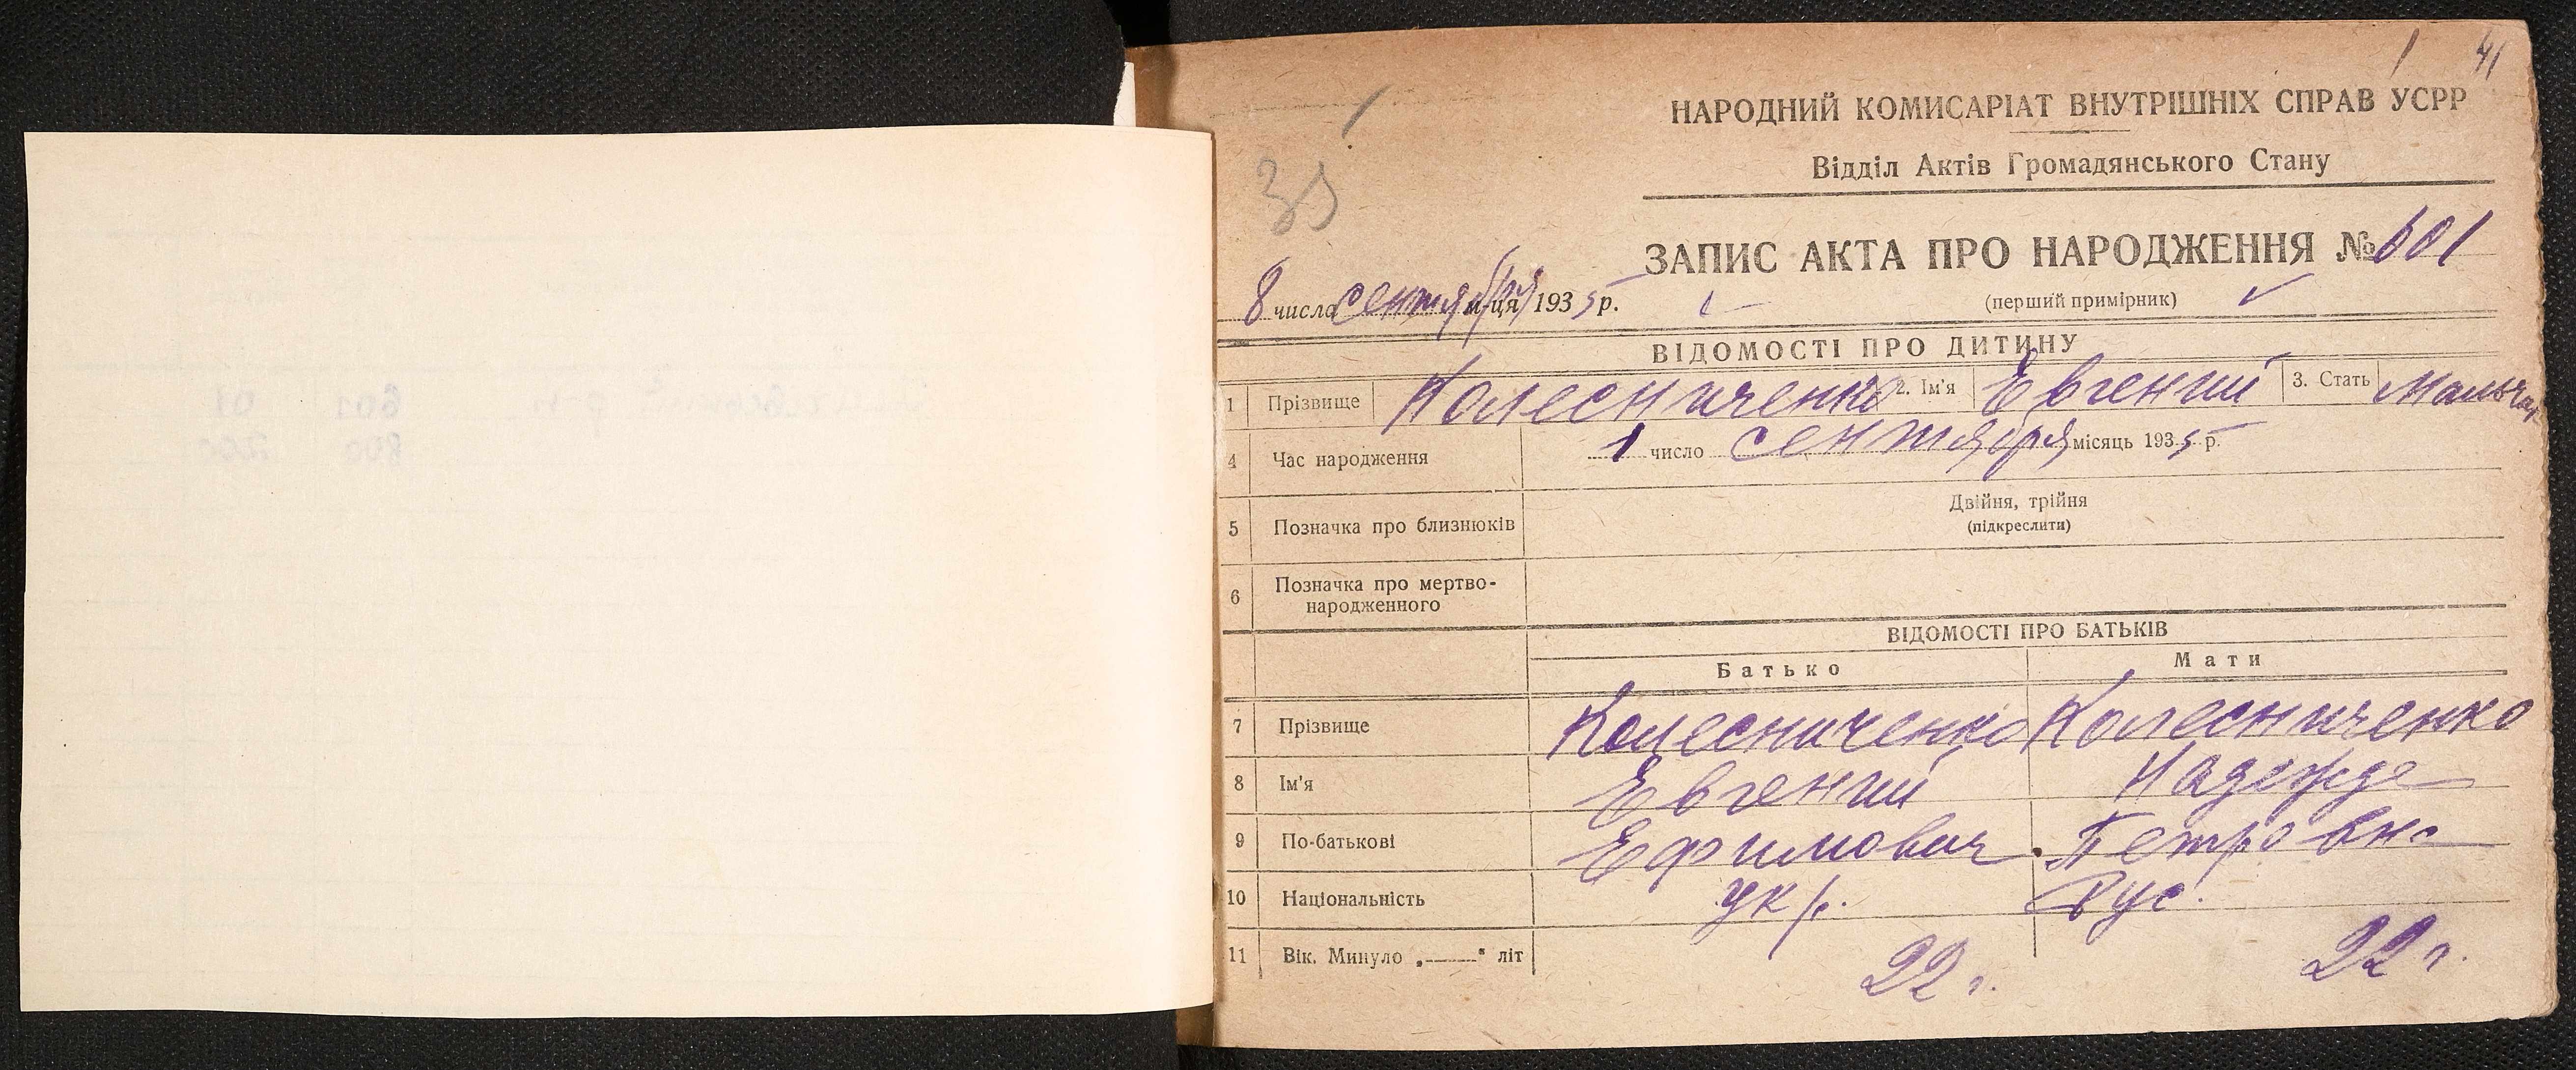 1 41
35
НАРОДНИЙ КОМИСАРІАТ ВНУТРІШНІХ СПРАВ УСРР
Відділ Актів Громадянського Стану
ЗАПИС АКТА ПРО НАРОДЖЕННЯ № 601
8 числа сентября м-ця 1935 р.
(перший примірник)
ВІДОМОСТІ ПРО ДИТИНУ
1 Прізвище Колесниченко 2. Ім'я Евгений 3. Стать Мальчик
4 Час народження 1 число сентября місяць 1935 р.
5 Позначка про близнюків Двійня, трійня
(підкреслити)
6 Позначка про мертво-
народженного
ВІДОМОСТІ ПРО БАТЬКІВ
Батько Мати
7 Прізвище Колесниченко Колесниченко
8 Ім'я Евгений Надежда
9 По-батькові Ефимович Петровна
10 Національність укр. Рус.
11 Вік. Минуло „——“ літ 22 г. 22 г.